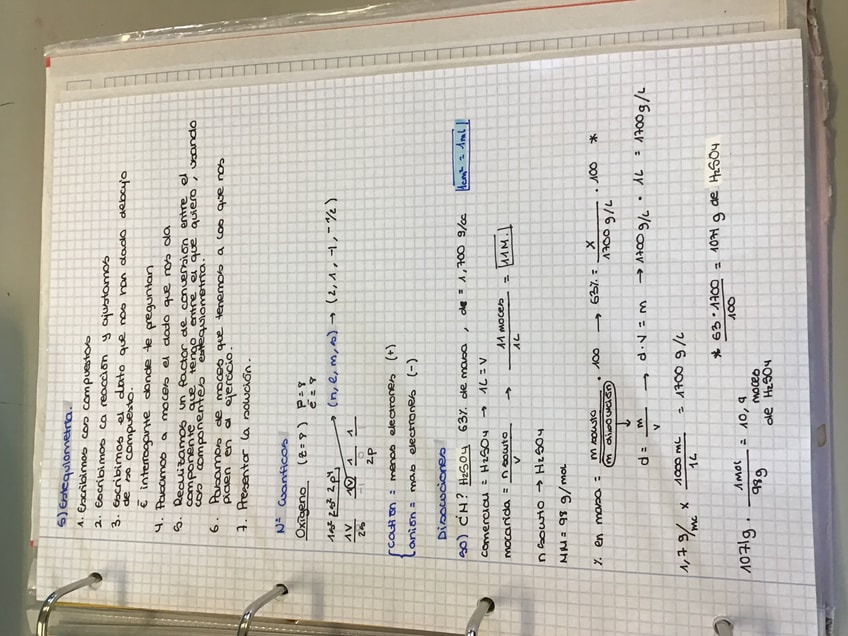 5) Estequiometria.
1. Escribimos los compuestos
2. Escribimos la reacción y ajustamos
3. Escribimos el dato que nos han dado debajo
de su compuesto.
E interrogante donde te preguntan
4. Pasamos a moles el dato que nos da
5. Realizamos un factor de conversión entre el
componente que tengo entre el que quiero, usando
los componentes estequiometria.
6. Pasamos de moles que tenemos a los que nos
piden en el ejercicio.
7. Presentar la solución.
Nº Cuanticos
Oxígeno (z=8) p=8
e=8
1s² 2s² 2p⁴ → (n, l, m, s) → (2, 1, -1, -1/2)
1V 1V 1 1
2s 2p
catión = menos electrones (+)
anión = mas electrones (-)
Disoluciones
H2SO4 63% de masa, d = 1,700 g/cc 1cm³ = 1ml
comercial = H2SO4 → 1L = V
molarida = n soluto / V → 11 moles / 1L = 11M.
n soluto → H2SO4
MM = 98 g/mol
% en masa = m soluto / m disolución · 100 → 63% = x / 1700 g/L · 100 *
d = m / v → d·V = m → 1700 g/L · 1L = 1700 g/L
1,7 g/mL x 1000 mL / 1L = 1700 g/L
* 63·1700 / 100 = 1071 g de H2SO4
1071g · 1mol / 98g = 10,9 moles
de H2SO4